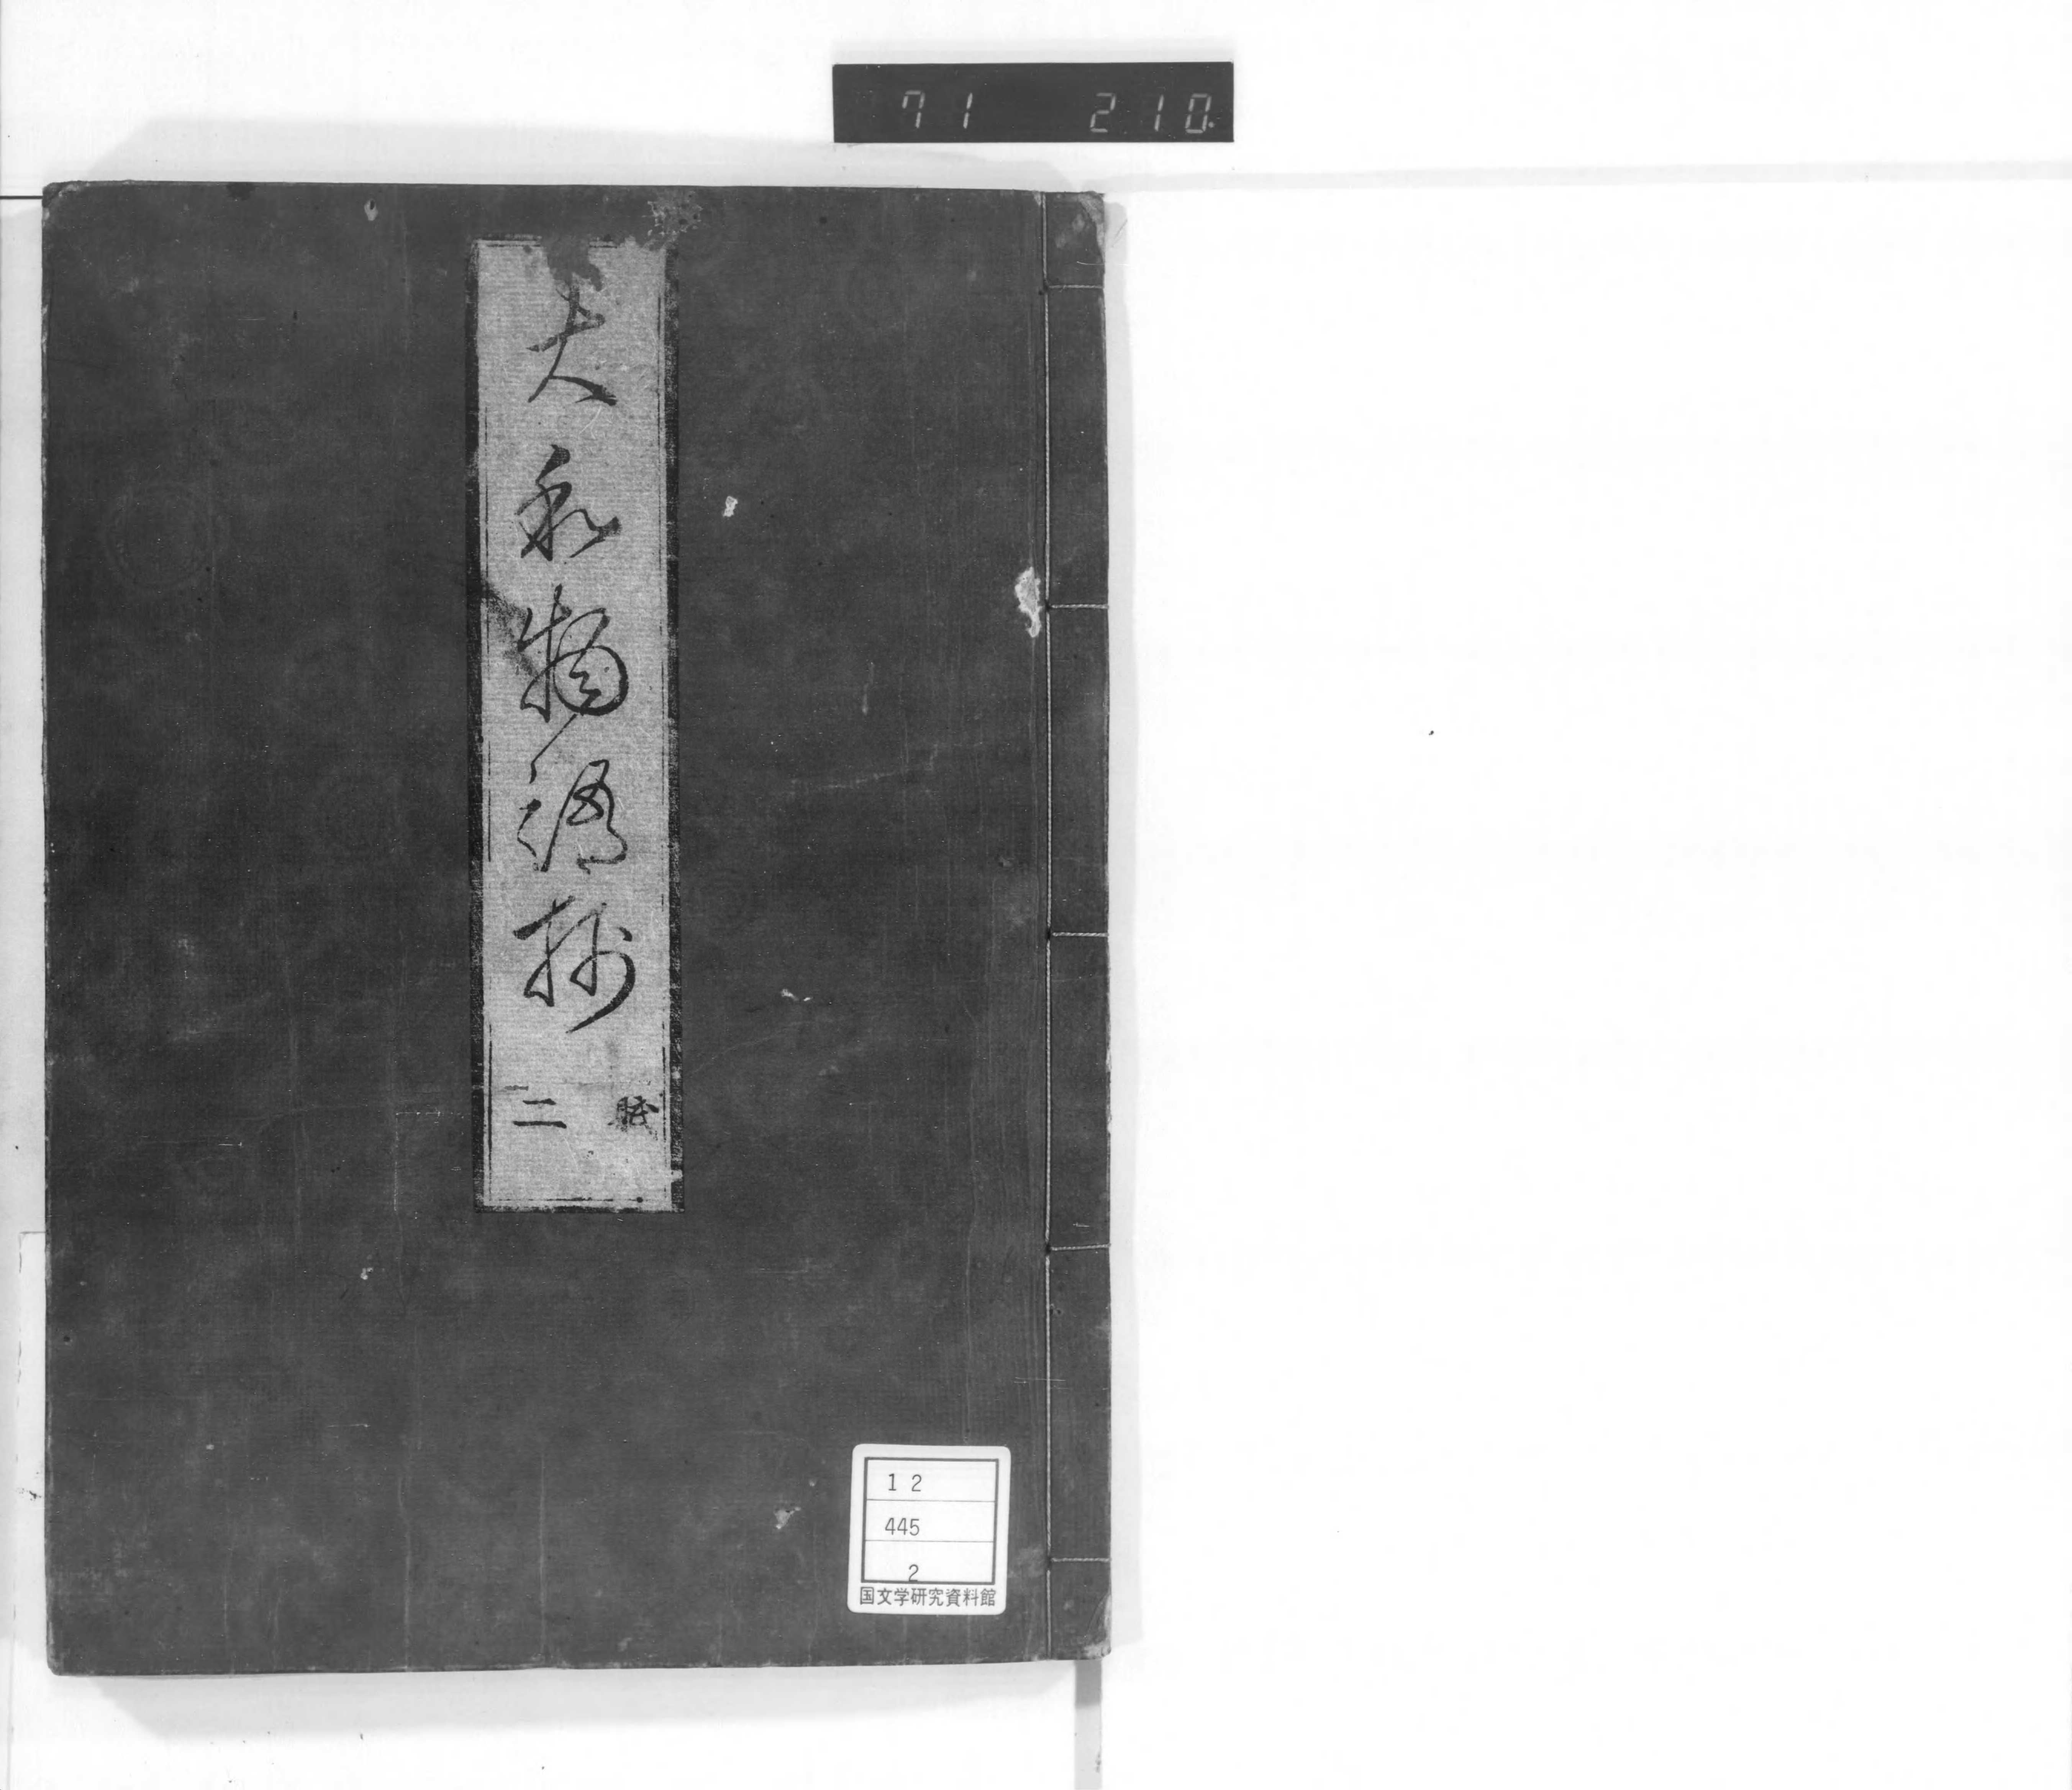 71 210.
大和物語抄
二
12
445
2
国文学研究資料館